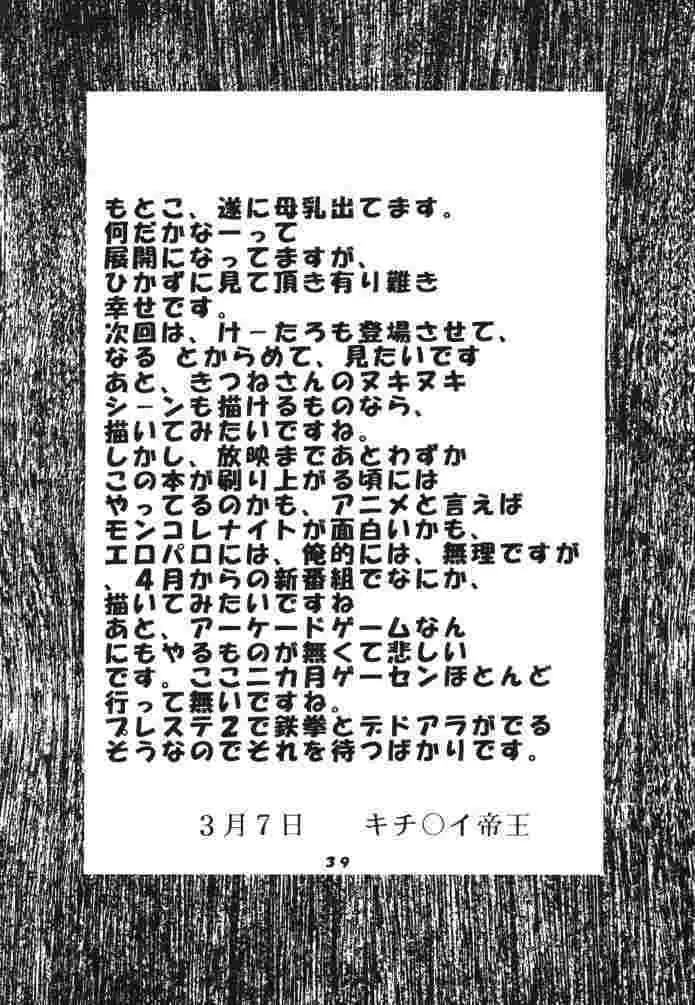 もとこ、遂に母乳出てます。
何だかなーって
展開になってますが、
ひかずに見て頂き有り難き
幸せです。
次回は、けーたろも登場させて、
なる とからめて、見たいです
あと、きつねさんのヌキヌキ
シーンも描けるものなら、
描いてみたいですね。
しかし、放映まであとわずか
この本が刷り上がる頃には
やってるのかも、アニメと言えば
モンコレナイトが面白いかも、
エロパロには、俺的には、無理ですが
、4月からの新番組でなにか、
描いてみたいですね
あと、アーケードゲームなん
にもやるものが無くて悲しい
です。ここ二カ月ゲーセンほとんど
行って無いですね。
プレステ2で鉄拳とデドアラがでる
そうなのでそれを待つばかりです。
3月7日 キチ○イ帝王
39